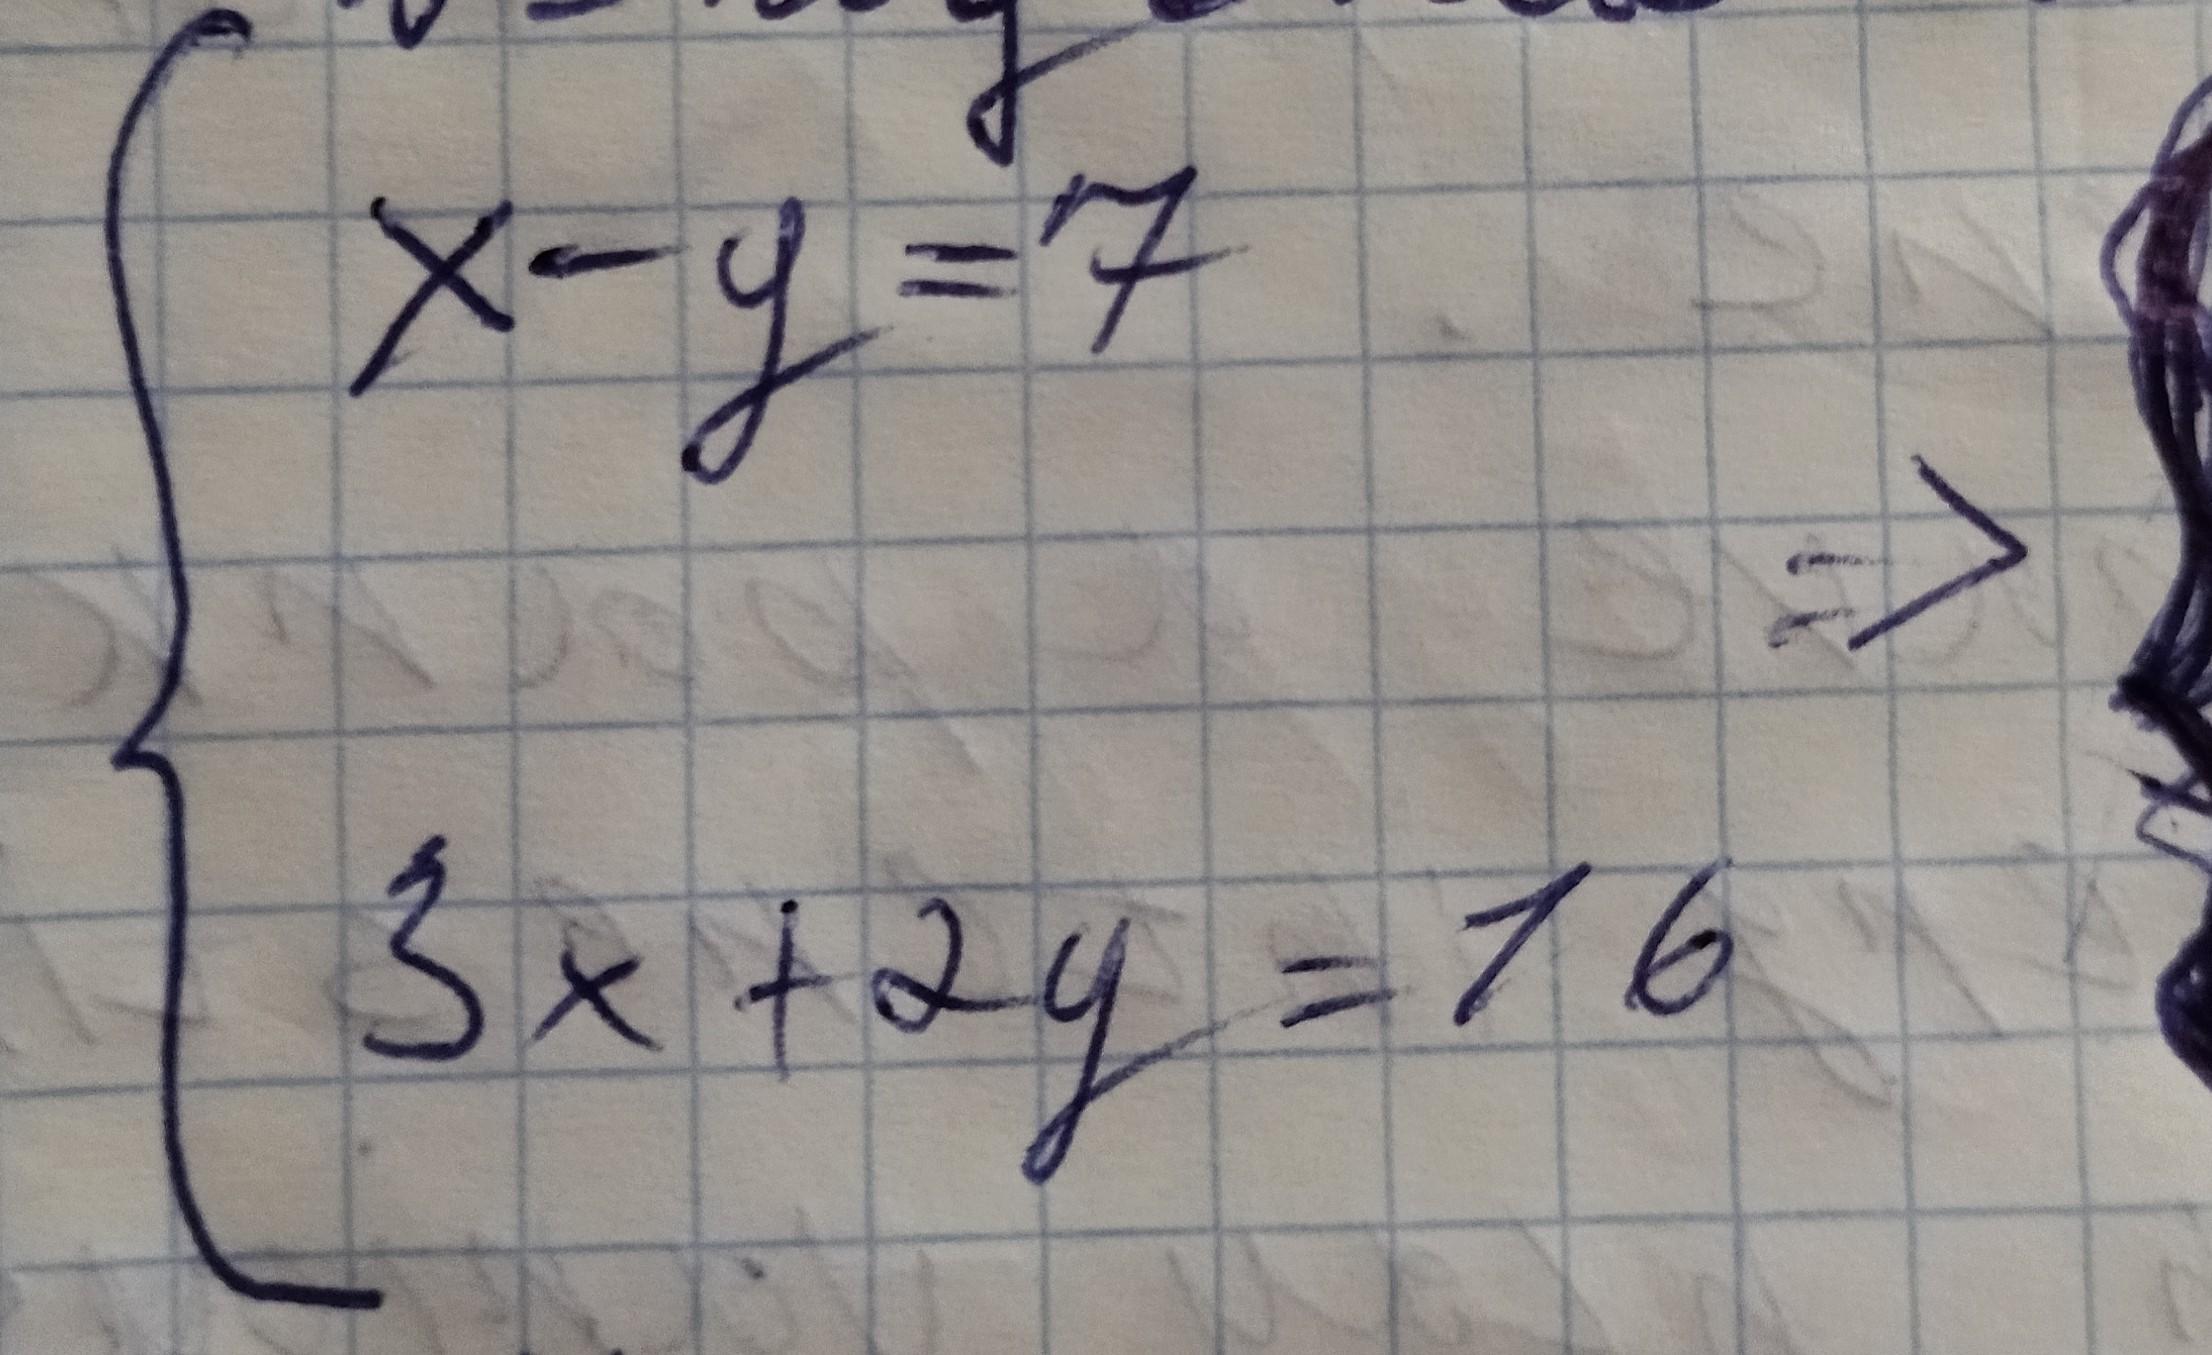 x - y = 7
=>
3x + 2y = 16